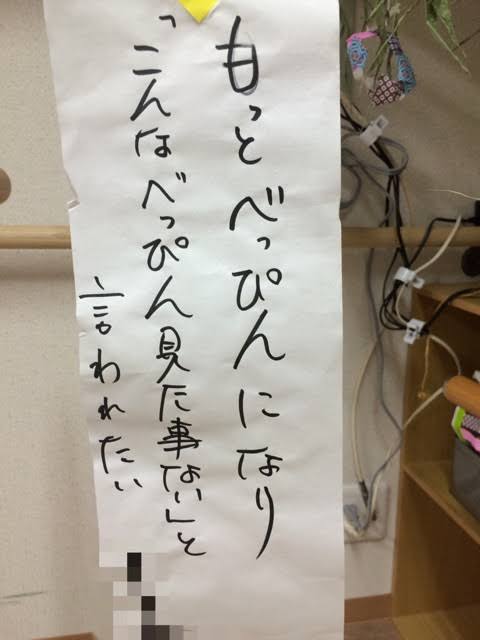 もっとべっぴんになり
「こんなべっぴん見た事ない」と
言われたい